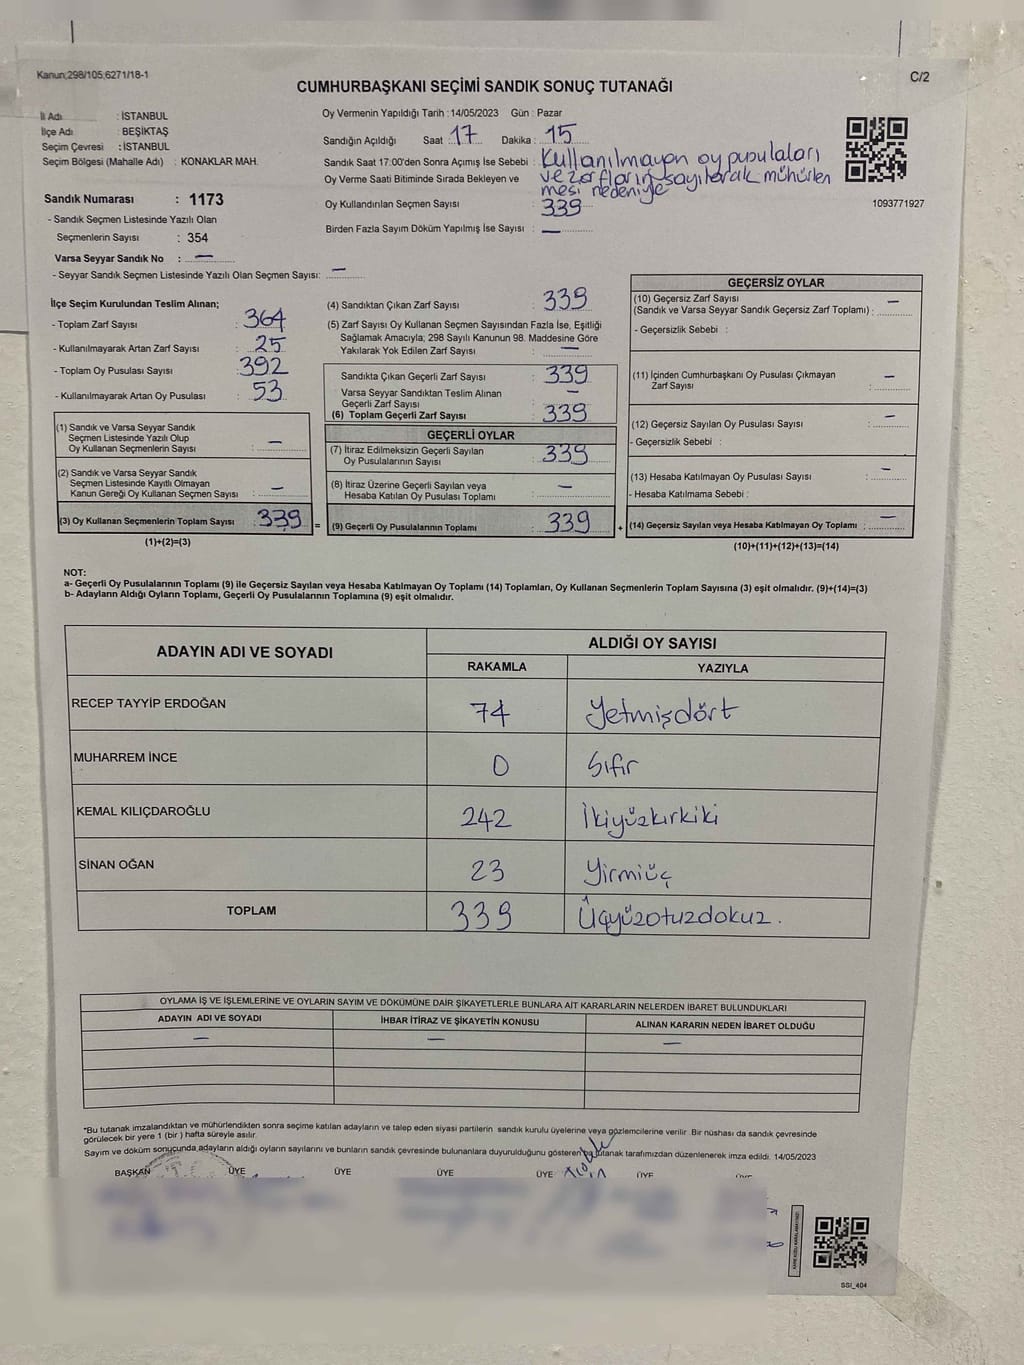 Kanun;298/105;6271/18-1
C/2
CUMHURBAŞKANI SEÇİMİ SANDIK SONUÇ TUTANAĞI
İl Adı : İSTANBUL
İlçe Adı : BEŞİKTAŞ
Seçim Çevresi : İSTANBUL
Seçim Bölgesi (Mahalle Adı) : KONAKLAR MAH.
Oy Vermenin Yapıldığı Tarih : 14/05/2023 Gün : Pazar
Sandığın Açıldığı Saat : 17 Dakika : 15
Sandık Saat 17:00'den Sonra Açımış İse Sebebi : Kullanılmayan oy pusulaları
Oy Verme Saati Bitiminde Sırada Bekleyen ve ve zarfların sayılarak mühürlen
mesi nedeniyle
Oy Kullandırılan Seçmen Sayısı : 339
Birden Fazla Sayım Döküm Yapılmış İse Sayısı : —
1093771927
Sandık Numarası : 1173
- Sandık Seçmen Listesinde Yazılı Olan
Seçmenlerin Sayısı : 354
Varsa Seyyar Sandık No : —
- Seyyar Sandık Seçmen Listesinde Yazılı Olan Seçmen Sayısı: —
İlçe Seçim Kurulundan Teslim Alınan;
- Toplam Zarf Sayısı : 364
- Kullanılmayarak Artan Zarf Sayısı : 25
- Toplam Oy Pusulası Sayısı : 392
- Kullanılmayarak Artan Oy Pusulası : 53
(1) Sandık ve Varsa Seyyar Sandık
Seçmen Listesinde Yazılı Olup
Oy Kullanan Seçmenlerin Sayısı : —
(2) Sandık ve Varsa Seyyar Sandık
Seçmen Listesinde Kayıtlı Olmayan
Kanun Gereği Oy Kullanan Seçmen Sayısı : —
(3) Oy Kullanan Seçmenlerin Toplam Sayısı : 339 =
(1)+(2)=(3)
(4) Sandıktan Çıkan Zarf Sayısı : 339
(5) Zarf Sayısı Oy Kullanan Seçmen Sayısından Fazla İse, Eşitliği
Sağlamak Amacıyla; 298 Sayılı Kanunun 98. Maddesine Göre
Yakılarak Yok Edilen Zarf Sayısı : —
Sandıkta Çıkan Geçerli Zarf Sayısı : 339
Varsa Seyyar Sandıktan Teslim Alınan
Geçerli Zarf Sayısı : —
(6) Toplam Geçerli Zarf Sayısı : 339
GEÇERLİ OYLAR
(7) İtiraz Edilmeksizin Geçerli Sayılan
Oy Pusulalarının Sayısı : 339
(8) İtiraz Üzerine Geçerli Sayılan veya
Hesaba Katılan Oy Pusulası Toplamı : —
(9) Geçerli Oy Pusulalarının Toplamı : 339 +
GEÇERSİZ OYLAR
(10) Geçersiz Zarf Sayısı
(Sandık ve Varsa Seyyar Sandık Geçersiz Zarf Toplamı) : —
- Geçersizlik Sebebi :
(11) İçinden Cumhurbaşkanı Oy Pusulası Çıkmayan
Zarf Sayısı : —
(12) Geçersiz Sayılan Oy Pusulası Sayısı : —
- Geçersizlik Sebebi :
(13) Hesaba Katılmayan Oy Pusulası Sayısı : —
- Hesaba Katılmama Sebebi :
(14) Geçersiz Sayılan veya Hesaba Katılmayan Oy Toplamı : —
(10)+(11)+(12)+(13)=(14)
NOT:
a- Geçerli Oy Pusulalarının Toplamı (9) ile Geçersiz Sayılan veya Hesaba Katılmayan Oy Toplamı (14) Toplamları, Oy Kullanan Seçmenlerin Toplam Sayısına (3) eşit olmalıdır. (9)+(14)=(3)
b- Adayların Aldığı Oyların Toplamı, Geçerli Oy Pusulalarının Toplamına (9) eşit olmalıdır.
ADAYIN ADI VE SOYADI ALDIĞI OY SAYISI
RAKAMLA YAZIYLA
RECEP TAYYİP ERDOĞAN 74 Yetmişdört
MUHARREM İNCE 0 Sıfır
KEMAL KILIÇDAROĞLU 242 İkiyüzkırkiki
SİNAN OĞAN 23 Yirmiüç
TOPLAM 339 Üçyüzotuzdokuz.
OYLAMA İŞ VE İŞLEMLERİNE VE OYLARIN SAYIM VE DÖKÜMÜNE DAİR ŞİKAYETLERLE BUNLARA AİT KARARLARIN NELERDEN İBARET BULUNDUKLARI
ADAYIN ADI VE SOYADI İHBAR İTİRAZ VE ŞİKAYETİN KONUSU ALINAN KARARIN NEDEN İBARET OLDUĞU
— — —
*Bu tutanak imzalandıktan ve mühürlendikten sonra seçime katılan adayların ve talep eden siyasi partilerin sandık kurulu üyelerine veya gözlemcilerine verilir. Bir nüshası da sandık çevresinde
görülecek bir yere 1 (bir ) hafta süreyle asılır.
Sayım ve döküm sonucunda adayların aldığı oyların sayılarını ve bunların sandık çevresinde bulunanlara duyurulduğunu gösteren bu tutanak tarafımızdan düzenlenerek imza edildi. 14/05/2023
BAŞKAN ÜYE ÜYE ÜYE ÜYE ÜYE ÜYE
SSI_404